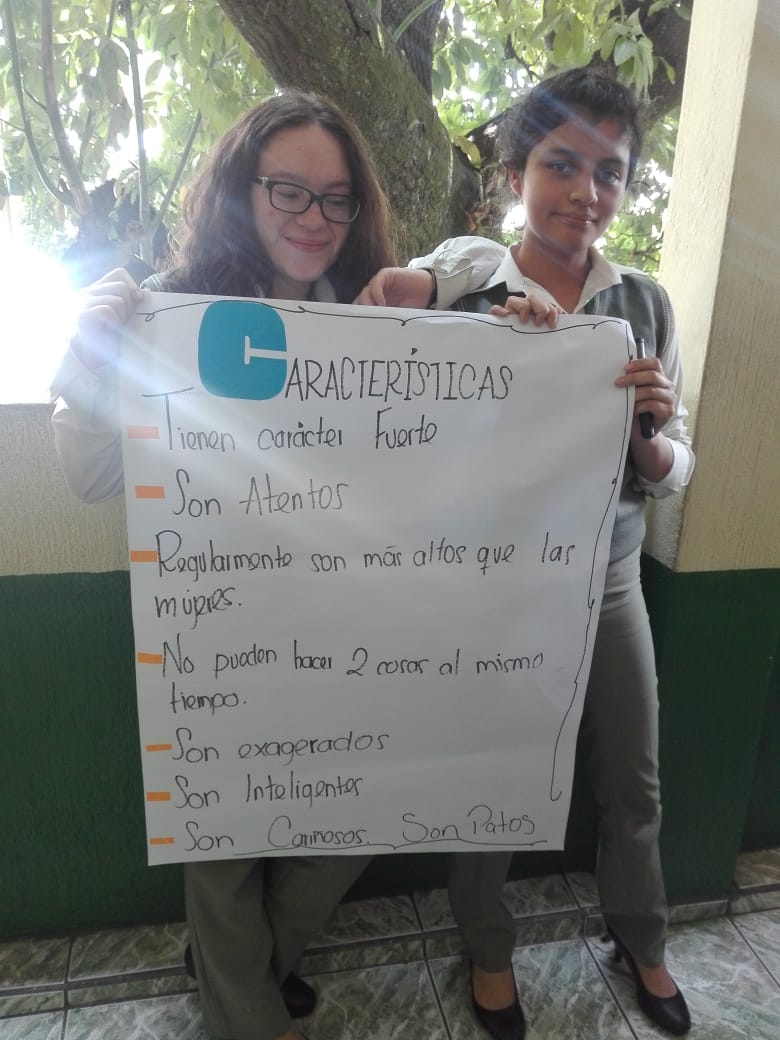 CARACTERÍSTICAS
Tienen carácter Fuerte
Son Atentos
Regularmente son más altos que las
mujeres.
No pueden hacer 2 cosas al mismo
tiempo.
Son exagerados
Son Inteligentes
Son Cariñosos. Son Patos